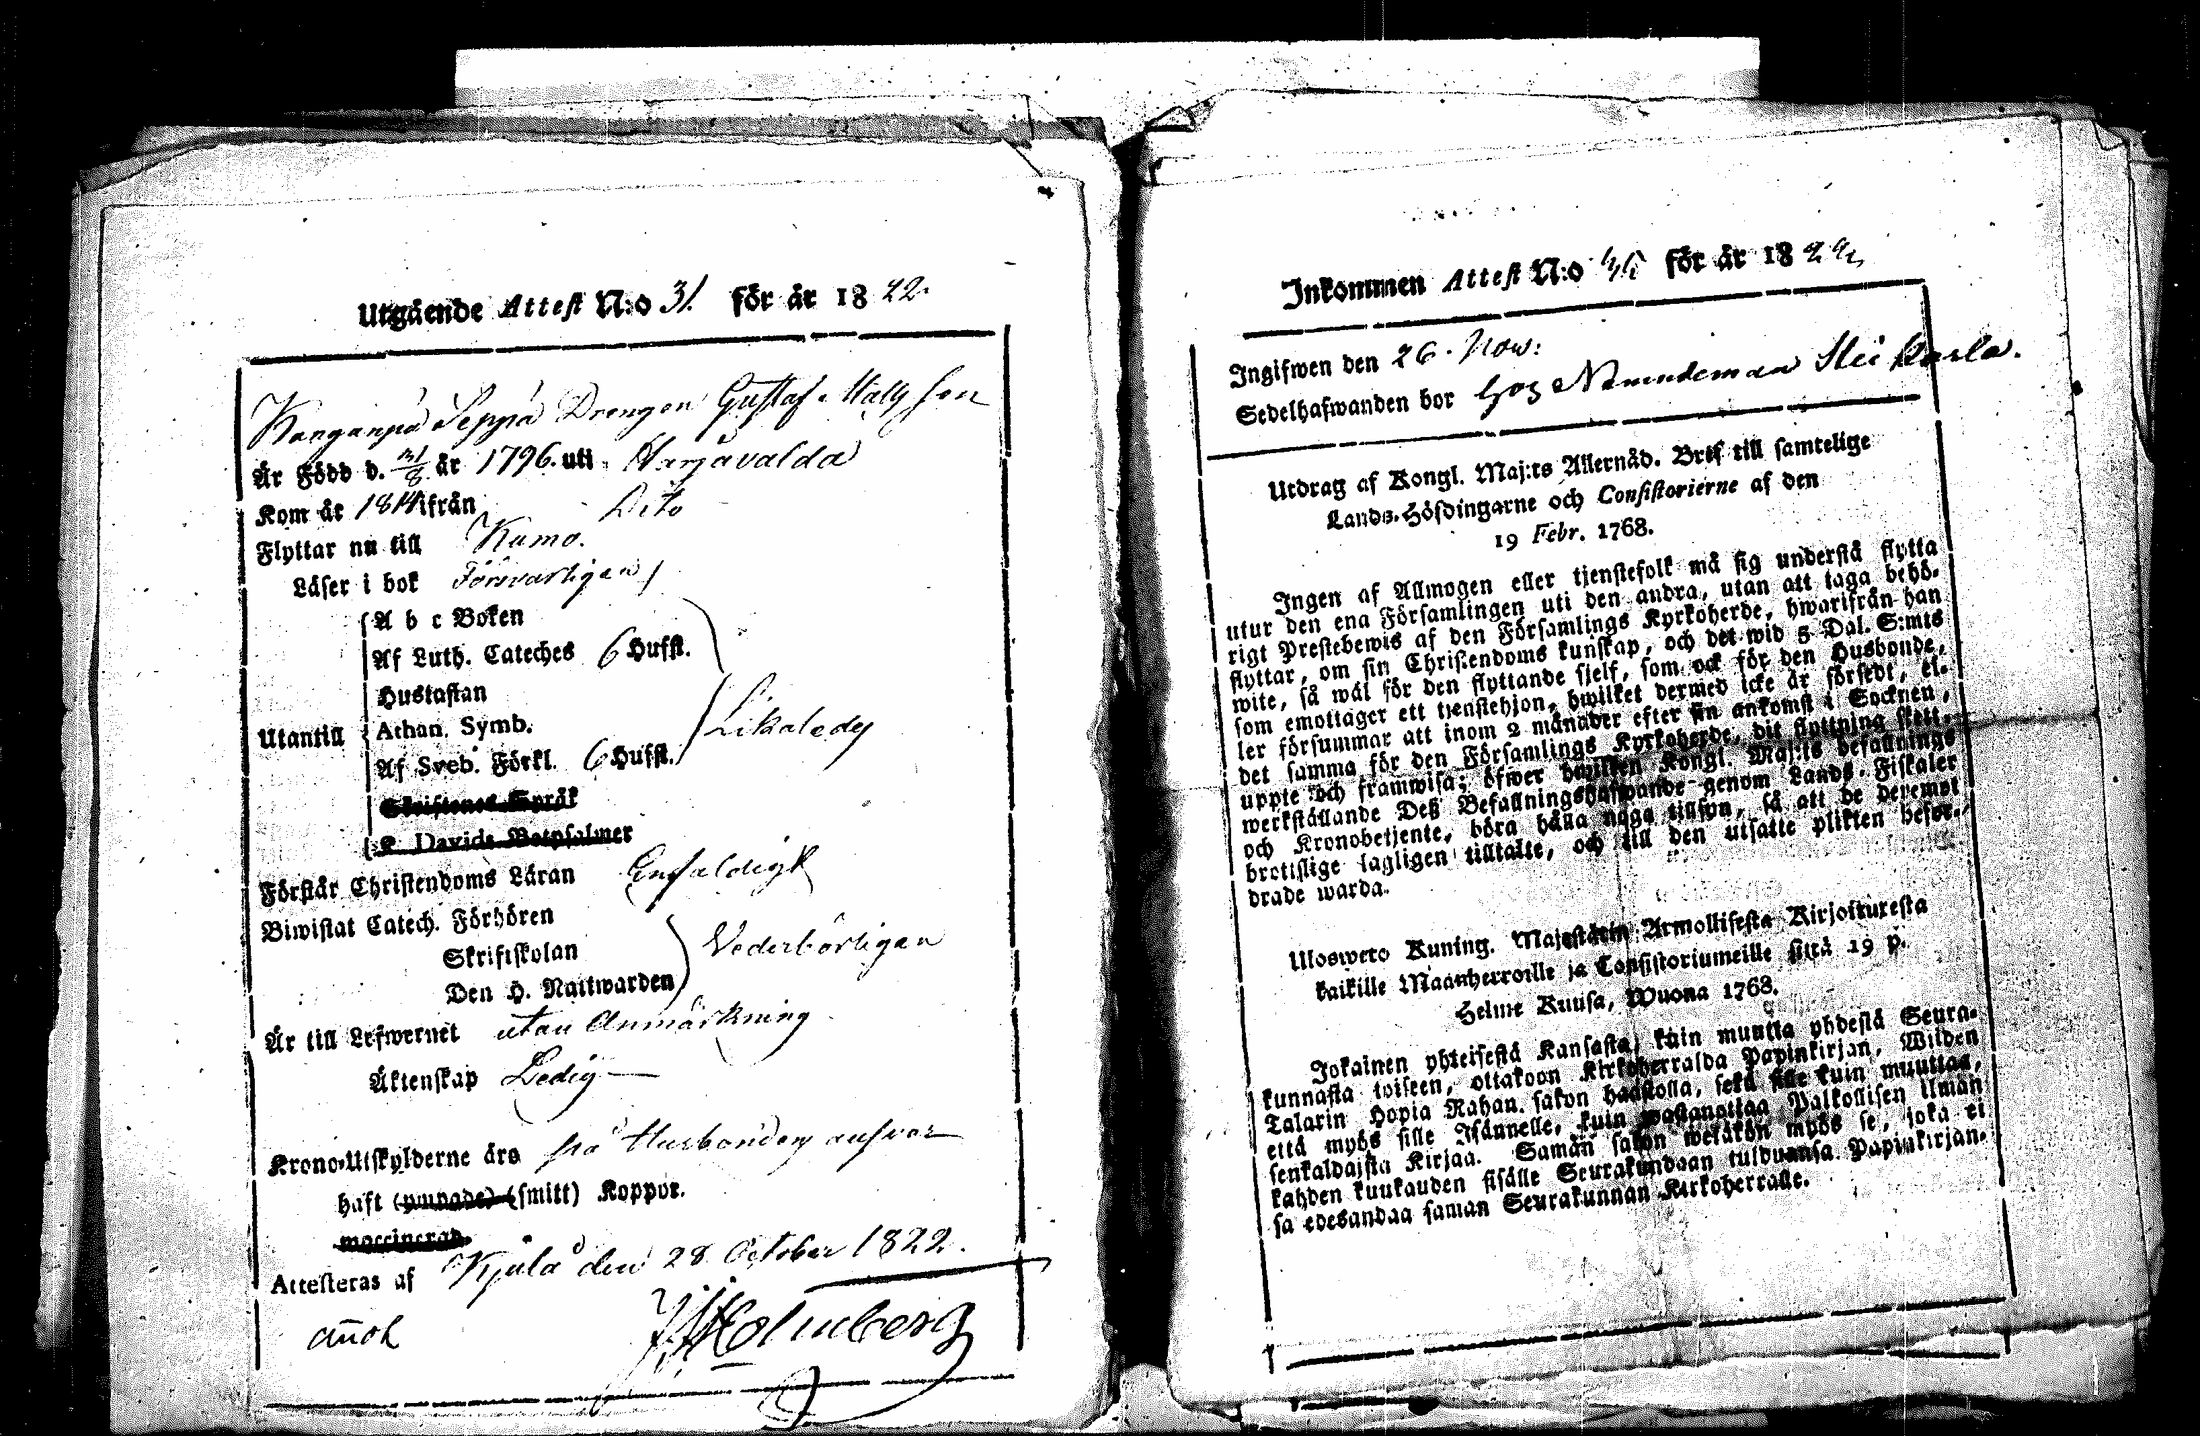 Utgående Attest N:o 31. för år 1822.
Kanganpä Seppä Drengen Gustaf Matts son
Är Född d. 21/8 år 1796. uti Harjavalda
Kom år 1814 ifrån Dito
Flyttar nu till Kumo.
Läser i bok Försvarligen
A b c Boken
Af Luth. Cateches 6 Hufst.
Hustaflan
Utantill Athan. Symb. Likaledes
Af Sveb. Förkl. 6 Hufst.
Skriftenes Språk
K. Davids Botpsalmer
Förstår Christendoms Läran Enfaldigt
Biwistat Catech. Förhören
Skriftskolan Vederbörligen
Den H. Nattwarden
Är till Lefwernet utan Anmärkning
Äktenskap Ledig
Krono-Utskylderne äro på Husbondens answar
haft (ympade) (smitt) Koppor.
waccinerad.
Attesteras af Kjulå den 28 October 1822.
Holmberg
Inkommen Attest N:o för år 1822
Ingifwen den 26. Now:
Sedelhafwanden bor hos Nämndeman
Utdrag af Kongl. Maj:ts Allernåd. Bref till samtelige
Lands-Höfdingarne och Consistorierne af den
19 Febr. 1768.
Ingen af Allmogen eller tjenstefolk må sig understå flytta
utur den ena Församlingen uti den andra, utan att taga behö-
rigt Prestebewis af den Församlings Kyrkoherde, hwarifrån han
flyttar, om sin Christendoms kunskap, och det wid 5 Dal. S:mts
wite, så wäl för den flyttande sjelf, som ock för den Husbonde,
som emottager ett tjenstehjon, hwilket dermed icke är försedt, el-
ler försummar att inom 2 månader efter sin ankomst i Socknen,
det samma för den Församlings Kyrkoherde, dit flyttning skett,
uppte och framwisa; öfwer hwilken Kongl. Maj:ts befallnings
werkställande Deß Befallningshafwande genom Lands-Fiskaler
och Kronobetjente, böra hålla noga tillsyn, så att de deremot
brotslige lagligen tilltalte, och till den utsatte plikten befor-
drade warda.
Uloswero Kuning. Majestätin Armollisesta Kirjoituresta
kaikille Maanherroille ja Consistoriumeille siitä 19 p.
Helme Kuusa, Wuona 1768.
Jokainen yhteisestä Kansasta, kuin muutta yhdestä Seura-
kunnasta toiseen, ottakoon Kirkoherralda Papinkirjan, Wiiden
Talarin Hopia Rahan sakon haastolla, sekä sille kuin muuttaa,
että myös sille Isännelle, kuin wastanottaa Palkollisen ilman
senkaldaista Kirjaa. Samän sakon wetäkön myös se, joka ei
kahden kuukauden sisälle Seurakundaan tulduansa Papinkirjan-
sa edesandaa saman Seurakunnan Kirkoherralle.